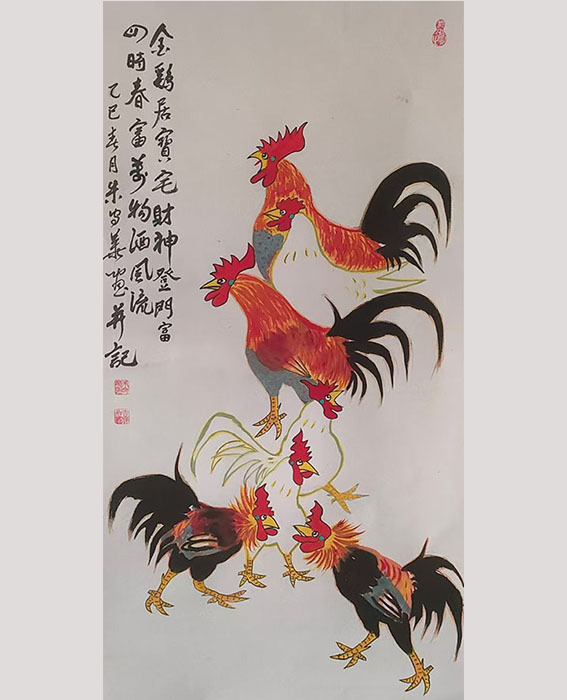 金鷄居寶宅財神登門富
四時春富萬物酒風流
乙巳春月朱華畫并記